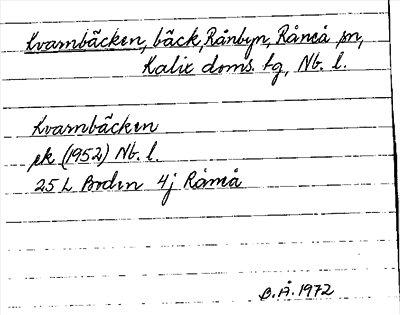 Kvarnbäcken, bäck, Rånbyn, Råneå sn,
Kalix doms. fg, Nb. l.
Kvarnbäcken
ek (1952) Nb. l.
25 L Boden 4j Råneå
B.Å. 1972